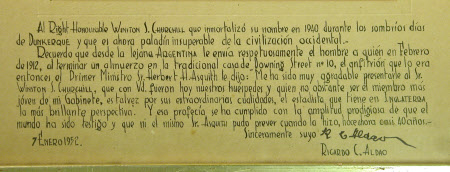 Al Right Honourable Winston S. Churchill, que inmortalizó su nombre en 1940 durante los sombríos días
de Dunkerque y que es ahora paladín insuperable de la civilización occidental.-
Recuerdo que desde la lejana Argentina le envía respetuosamente el hombre a quién en Febrero
de 1912, al terminar un almuerzo en la tradicional casa de Downing Street Nº 10, el anfitrión que lo era
entonces el Primer Ministro Sr. Herbert H. Asquith le dijo: Me ha sido muy agradable presentarle al Sr.
Winston S. Churchill, que con Vd. fueron hoy nuestros huéspedes y quien no obstante ser el miembro más
jóven de mi Gabinete, es talvez por sus extraordinarias cualidades, el estadista que tiene en Inglaterra
la más brillante perspectiva. Y esa profecía se ha cumplido con la amplitud prodigiosa de que el
mundo ha sido testigo y que ni el mismo Sr. Asquith pudo prever cuando la hizo, hace ahora casi 40 años.-
Sinceramente suyo
7 Enero 1952.
Ricardo C. Aldao